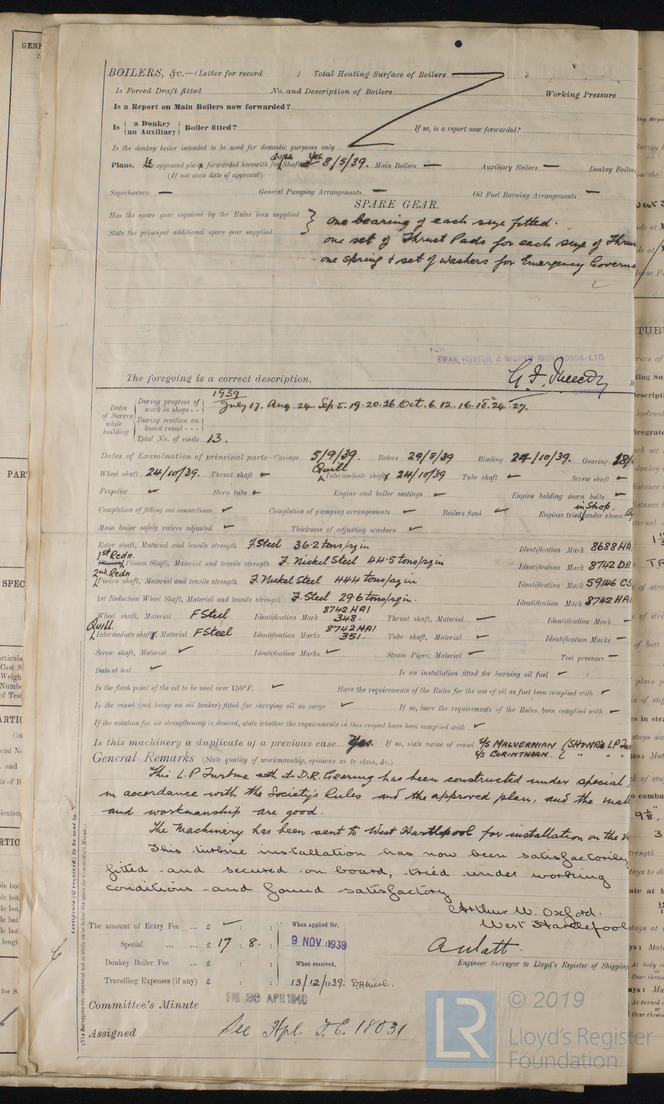 BOILERS, &c.—(Letter for record ) Total Heating Surface of Boilers
Is Forced Draft fitted No. and Description of Boilers Working Pressure
Is a Report on Main Boilers now forwarded?
Is { a Donkey / an Auxiliary } Boiler fitted? If so, is a report now forwarded?
Is the donkey boiler intended to be used for domestic purposes only
Plans. Is approved plan forwarded herewith for Shaft Yes 8/5/39. Main Boilers — Auxiliary Boilers — Donkey Boilers
(If not state date of approval)
Superheaters. — General Pumping Arrangements — Oil Fuel Burning Arrangements —
SPARE GEAR.
Has the spare gear required by the Rules been supplied one bearing of each size fitted.
State the principal additional spare gear supplied one set of Thrust Pads for each size of Thru
one spring & set of washers for Emergency Governo
FOR
SWAN, HUNTER, & WIGHAM RICHARDSON, LTD.
The foregoing is a correct description, G. F. Tweedy
Dates of Survey while building
During progress of work in shops - - 1939 July 17. Aug. 24. Sep 5. 19. 20. 26. Oct. 6. 12. 16. 18. 24. 27.
During erection on board vessel - - -
Total No. of visits 13.
Dates of Examination of principal parts—Casings 5/9/39. Rotors 29/8/39 Blading 24/10/39. Gearing 18/
Wheel shaft 24/10/39. Thrust shaft Quill Intermediate shaft 24/10/39 Tube shaft Screw shaft
Propeller Stern tube Engine and boiler seatings Engine holding down bolts
Completion of fitting sea connections Completion of pumping arrangements Boilers fixed Engines tried under steam in Shop.
Main boiler safety valves adjusted Thickness of adjusting washers
Rotor shaft, Material and tensile strength F. Steel 36.2 tons/sq in Identification Mark 8688 HA
1st Redn. Pinion Shaft, Material and tensile strength F. Nickel Steel 44.5 tons/sq in Identification Mark 8742 DB
2nd Redn Pinion shaft, Material and tensile strength F. Nickel Steel 44.4 tons/sq in Identification Mark 59146 CS
1st Reduction Wheel Shaft, Material and tensile strength F. Steel 29.6 tons/sq in. Identification Mark 8742 HAI
Wheel shaft, Material F Steel Identification Mark 8742 HAI 348. Thrust shaft, Material — Identification Mark —
Quill Intermediate shaft, Material F Steel Identification Marks 8742 HAI 351. Tube shaft, Material — Identification Marks —
Screw shaft, Material Identification Marks Steam Pipes, Material Test pressure —
Date of test Is an installation fitted for burning oil fuel
Is the flash point of the oil to be used over 150°F. Have the requirements of the Rules for the use of oil as fuel been complied with
Is the vessel (not being an oil tanker) fitted for carrying oil as cargo If so, have the requirements of the Rules been complied with
If the notation for ice strengthening is desired, state whether the requirements in this respect have been complied with
Is this machinery a duplicate of a previous case Yes. If so, state name of vessel S/S MALVERNIAN
S/S CORINTHIAN. ( " "
General Remarks (State quality of workmanship, opinions as to class, &c.)
This L.P Turbine with its D.R. Gearing has been constructed under special
in accordance with the Society's Rules and the approved plan, and the mat
and workmanship are good.
The Machinery has been sent to West Hartlepool for installation on the
This turbine installation has now been satisfactorily
fitted and secured on board, tried under working
conditions and found satisfactory
Arthur W. Oxford.
West Hartlepool
The amount of Entry Fee ... £ : : When applied for,
Special ... ... £ 17 : 8 : 9 NOV 1939
A Watt.
Donkey Boiler Fee ... £ : : When received, Engineer Surveyor to Lloyd's Register of Shipping
Travelling Expenses (if any) £ : : 13/12/1939.
Committee's Minute FRI 26 APR 1940
Assigned See Hpl. F.E. 18031
LR
© 2019
Lloyd's Register
Foundation